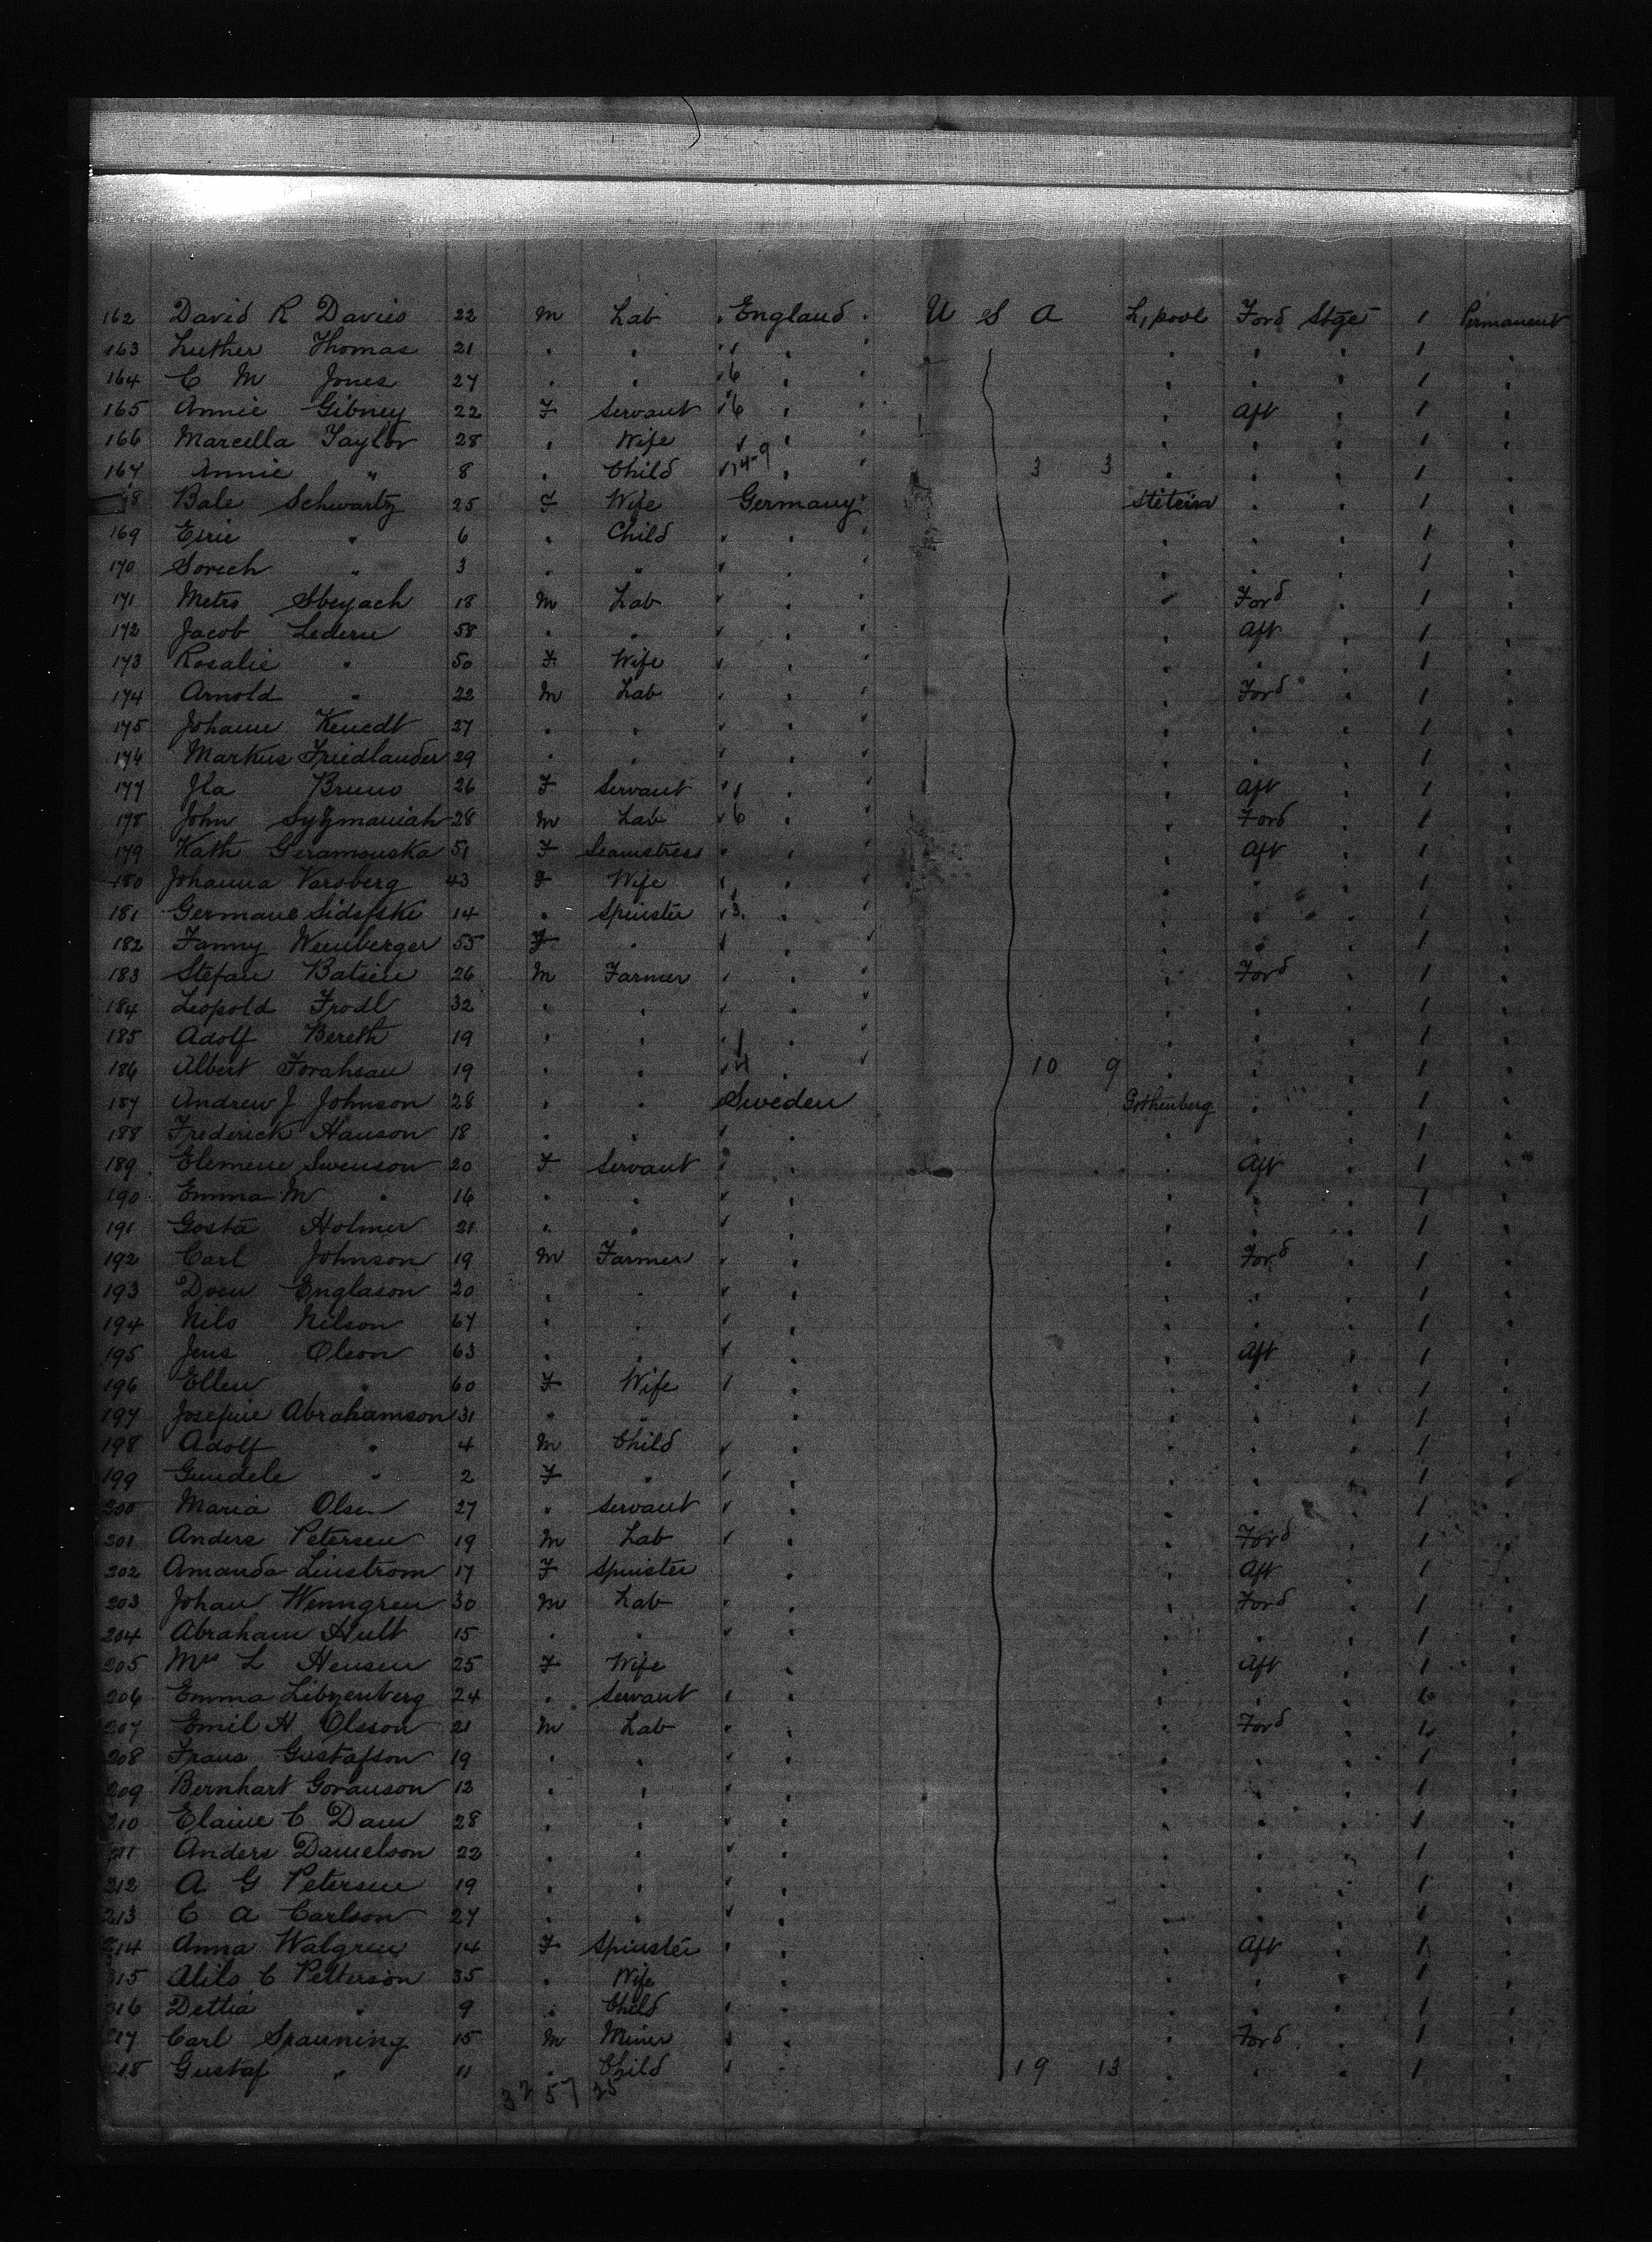 162 David R Davies 22 M Lab England U S A L'pool Ford Stge 1 Permanent
163 Luther Thomas 21 " " " " " " 1 "
164 C M Jones 27 " " 6 " " " " 1 "
165 Annie Gibney 22 F Servant 6 " " Aft " 1 "
166 Marcella Taylor 28 " Wife " " " " 1 "
167 Annie " 8 " Child 14-9 " 3 3 " " " 1 "
8 Bale Schwartz 25 F Wife Germany Stetein " " 1 "
169 Esrie " 6 " Child " " " " 1 "
170 Sorech " 3 " " " " " " 1 "
171 Metro Sbeyach 18 M Lab " " Ford " 1 "
172 Jacob Lederu 58 " " " " Aft " 1 "
173 Rosalie " 50 F Wife " " " " 1 "
174 Arnold " 22 M Lab " " Ford " 1 "
175 Johann Kenedt 27 " " " " " " 1 "
176 Markus Friedlander 29 " " " " " " 1 "
177 Ila Bruno 26 F Servant " " Aft " 1 "
178 John Sytzmaniah 28 M Lab 6 " " Ford " 1 "
179 Kath Geramouska 51 F Seamstress " " Aft " 1 "
180 Johanna Varsberg 43 F Wife " " " " 1 "
181 Germane Sidsfski 14 " Spinster 3 " " " " 1 "
182 Fanny Weenberger 55 F " " " " " 1 "
183 Stefan Batsien 26 M Farmer " " Ford " 1 "
184 Leopold Frodl 32 " " " " " " 1 "
185 Adolf Bereth 19 " " " " " " 1 "
186 Albert Forahsau 19 " " " 10 9 " " " 1 "
187 Andrew J Johnson 28 " " Sweden Gothenberg " " 1 "
188 Frederick Hanson 18 " " " " " " 1 "
189 Elemene Swenson 20 F Servant " " Aft " 1 "
190 Emma M " 16 " " " " " " 1 "
191 Gosta Holmer 21 " " " " " " 1 "
192 Carl Johnson 19 M Farmer " " Ford " 1 "
193 Dven Englason 20 " " " " " " 1 "
194 Nils Nilson 67 " " " " " " 1 "
195 Jens Olson 63 " " " " Aft " 1 "
196 Ellen " 60 F Wife " " " " 1 "
197 Josefine Abrahamson 31 " " " " " " 1 "
198 Adolf " 4 M Child " " " " 1 "
199 Gundele " 2 F " " " " " 1 "
200 Maria Olsen 27 " Servant " " " " 1 "
201 Anders Petersen 19 M Lab " " Ford " 1 "
202 Amanda Linstrom 17 F Spinster " " Aft " 1 "
203 Johan Wenngren 30 M Lab " " Ford " 1 "
204 Abraham Hult 15 " " " " " " 1 "
205 Mrs L Hensen 25 F Wife " " Aft " 1 "
206 Emma Libzenberg 24 " Servant " " " " 1 "
207 Emil H Olsson 21 M Lab " " Ford " 1 "
208 Frans Gustafson 19 " " " " " " 1 "
209 Bernhart Goranson 12 " " " " " " 1 "
210 Elaine C Dam 28 " " " " " " 1 "
211 Anders Danielson 22 " " " " " " 1 "
212 A G Petersen 19 " " " " " " 1 "
213 C A Carlson 27 " " " " " " 1 "
214 Anna Walgren 14 F Spinster " " Aft " 1 "
215 Alils C Petterson 35 " Wife " " " " 1 "
216 Dettia " 9 " Child " " " " 1 "
217 Carl Spanning 15 M Miner " " Ford " 1 "
218 Gustaf " 11 " Child " 19 13 " " " 1 "
32 57 25